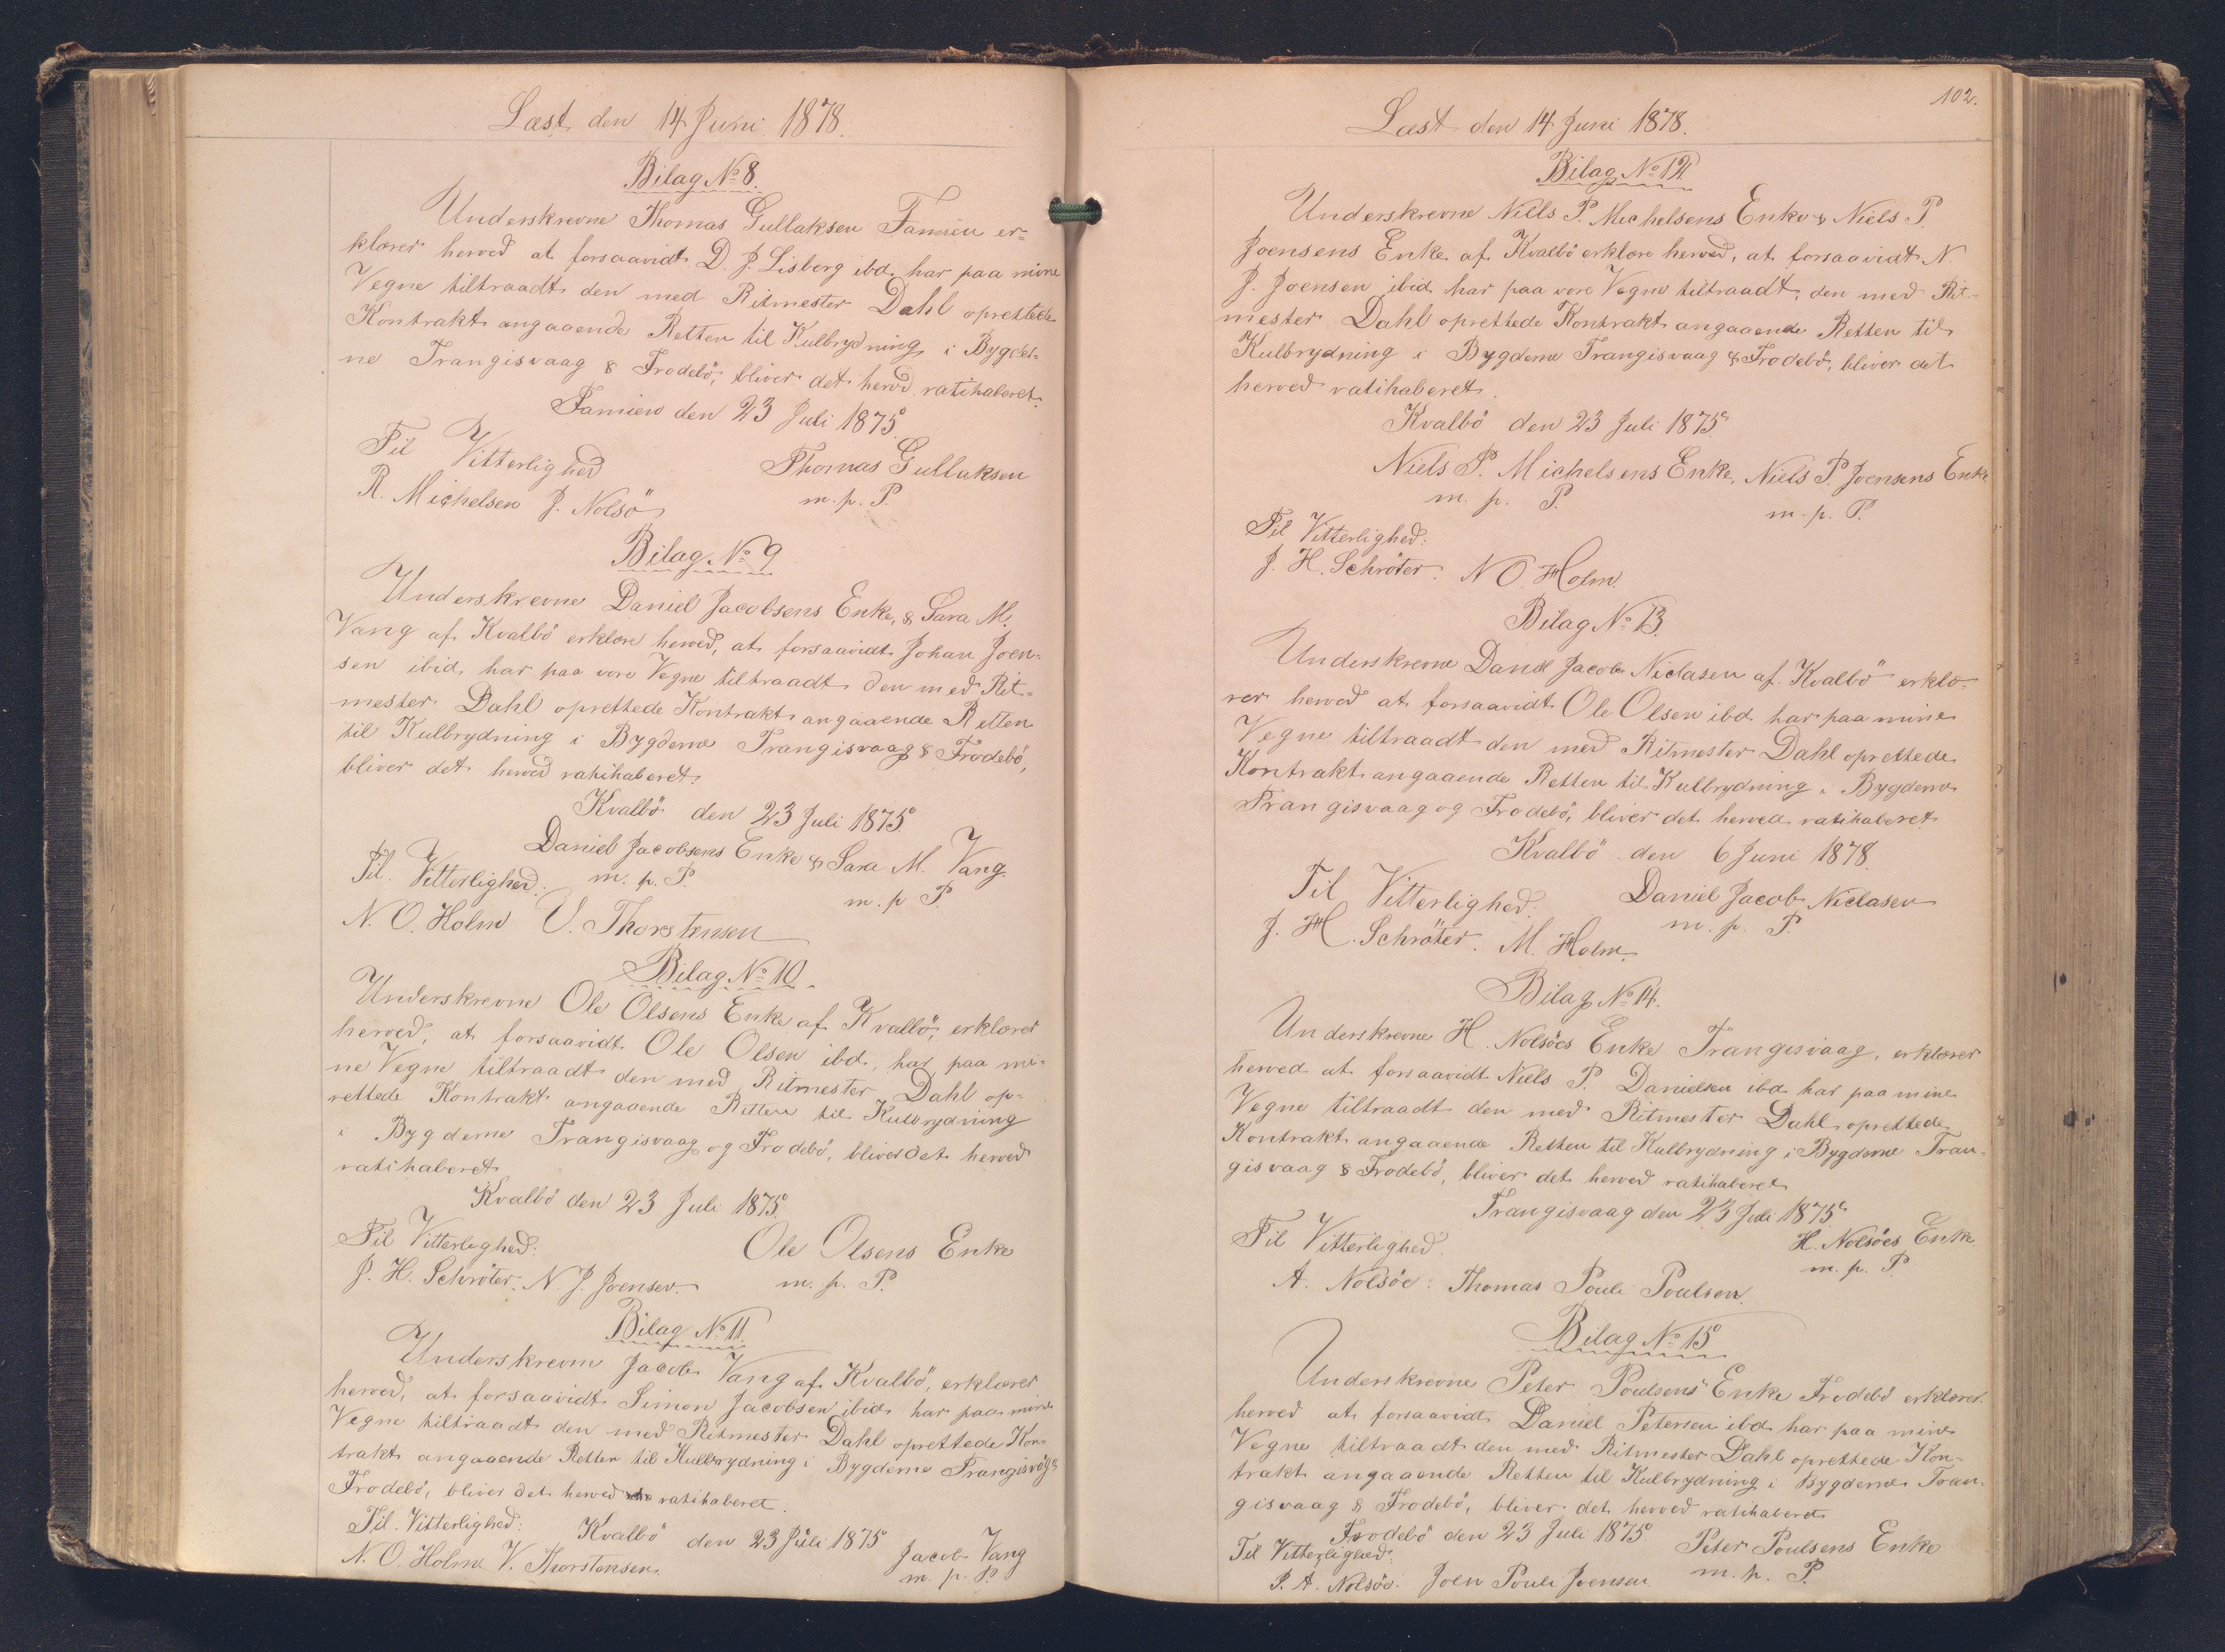 Læst den 14 Juni 1878.
Bilag No 8.
Underskrevne Thomas Gullaksen Famien er-
klærer herved at forsaavidt D. J. Lisberg ibd. har paa mine
Vegne tiltraadt den med Ritmester Dahl oprettede
Kontrakt angaaende Retten til Kulbrydning i Bygder-
ne Trangisvaag & Frodebö, bliver det herved ratihaberet.
Famien den 23 Juli 1875.
Til Vitterlighed
Thomas Gullaksen
R. Michelsen J. Nolsö
m. p. P.
Bilag No 9
Underskrevne Daniel Jacobsens Enke, & Sara M.
Vang af Kvalbö erklære herved, at forsaavidt Johan Joen-
sen ibid. har paa vore Vegne tiltraadt den med Rit-
mester Dahl oprettede Kontrakt angaaende Retten
til Kulbrydning i Bygderne Trangisvaag & Frodebö,
bliver det herved ratihaberet.
Kvalbö den 23 Juli 1875.
Daniel Jacobsens Enke & Sara M. Vang.
Til Vitterlighed. m. p. P.
m. p P.
N. O. Holm V. Thorstensen
Bilag No 10
Underskrevne Ole Olsens Enke af Kvalbö, erklærer
herved, at forsaavidt Ole Olsen ibd., har paa mi-
ne Vegne tiltraadt den med Ritmester Dahl op-
rettede Kontrakt angaaende Retten til Kulbrydning
i Bygderne Trangisvaag og Frodebö, bliver det herved
ratihaberet
Kvalbö den 23 Juli 1875.
Til Vitterlighed:
Ole Olsens Enke
J. H. Schröter. N. J. Joensen.
m. p. P.
Bilag No 11.
Underskrevne Jacob Vang af Kvalbö, erklærer
herved, at forsaavidt Simon Jacobsen ibid. har paa mine
Vegne tiltraadt den med Ritmester Dahl oprettede Kon-
trakt angaaende Retten til Kulbrydning i Bygderne Trangisvåg &
Frodebö, bliver det herved ratihaberet.
Til Vitterlighed:
Kvalbö den 23 Juli 1875
Jacob Vang
N. O. Holm V. Thorstensen.
m. p. P.
102.
Læst den 14 Juni 1878.
Bilag No 12.
Underskrevne Niels P. Michelsens Enke & Niels P.
Joensens Enke af Kvalbö erklære herved, at forsaavidt N
J. Joensen ibid. har paa vore Vegne tiltraadt, den med Rit-
mester Dahl oprettede Kontrakt angaaende Retten til
Kulbrydning i Bygderne Trangisvaag & Frodebö, bliver det
herved ratihaberet.
Kvalbö den 23 Juli 1875.
Niels P. Michelsens Enke, Niels P. Joensens Enke
m. p. P.
m. p. P.
Til Vitterlighed:
J. H. Schröter. N O. Holm.
Bilag No 13.
Underskrevne Daniel Jacob Niclasen af Kvalbö erklæ-
rer herved at forsaavidt Ole Olsen ibd. har paa mine
Vegne tiltraadt den med Ritmester Dahl oprettede
Kontrakt angaaende Retten til Kulbrydning i Bygderne
Trangisvaag og Frodebö, bliver det herved ratihaberet
Kvalbö den 6 Juni 1878.
Til Vitterlighed:
Daniel Jacob Niclasen
J. H. Schröter. M. Holm.
m. p. P.
Bilag No 14.
Underskrevne H. Nolsöes Enke Trangisvaag, erklærer
herved at forsaavidt Niels P. Danielsen ibd. har paa mine
Vegne tiltraadt den med Ritmester Dahl oprettede
Kontrakt angaaende Retten til Kulbrydning i Bygderne Tran-
gisvaag & Frodebö, bliver det herved ratihaberet
Trangisvaag den 23 Juli 1875.
Til Vitterlighed.
H. Nolsöes Enke
m. p. P.
A. Nolsöe. Thomas Poule Poulsen.
Bilag No 15
Underskrevne Peter Poulsens Enke Frodebö erklærer
herved at forsaavidt Daniel Petersen ibd. har paa mine
Vegne tiltraadt den med Ritmester Dahl oprettede Kon-
trakt angaaende Retten til Kulbrydning i Bygderne Tran-
gisvaag & Frodebö, bliver det herved ratihaberet
Frodebö den 23 Juli 1875.
Til Vitterlighed:
Peter Poulsens Enke
P. A. Nolsöe. Joen Poule Joensen
m. p. P.